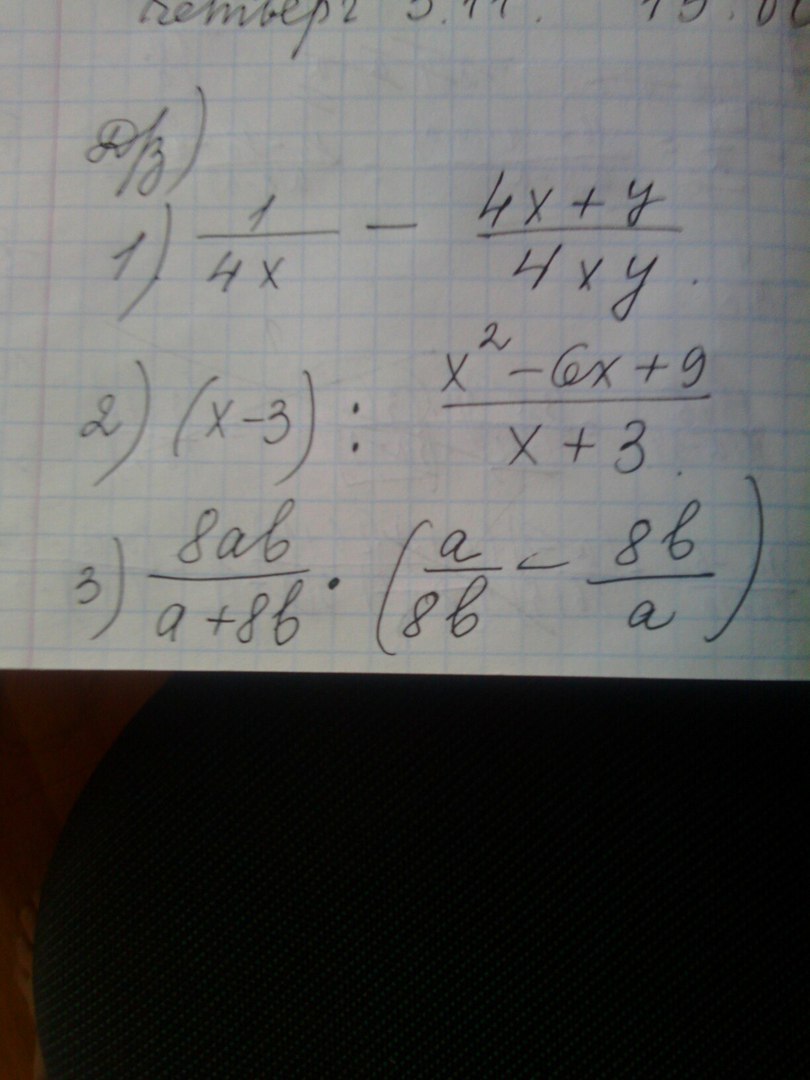 четверг 5.11. 15.00
Д/з)
1) 1/4x - (4x+y)/4xy.
2) (x-3) : (x²-6x+9)/(x+3).
3) 8ab/(a+8b) · (a/8b - 8b/a)